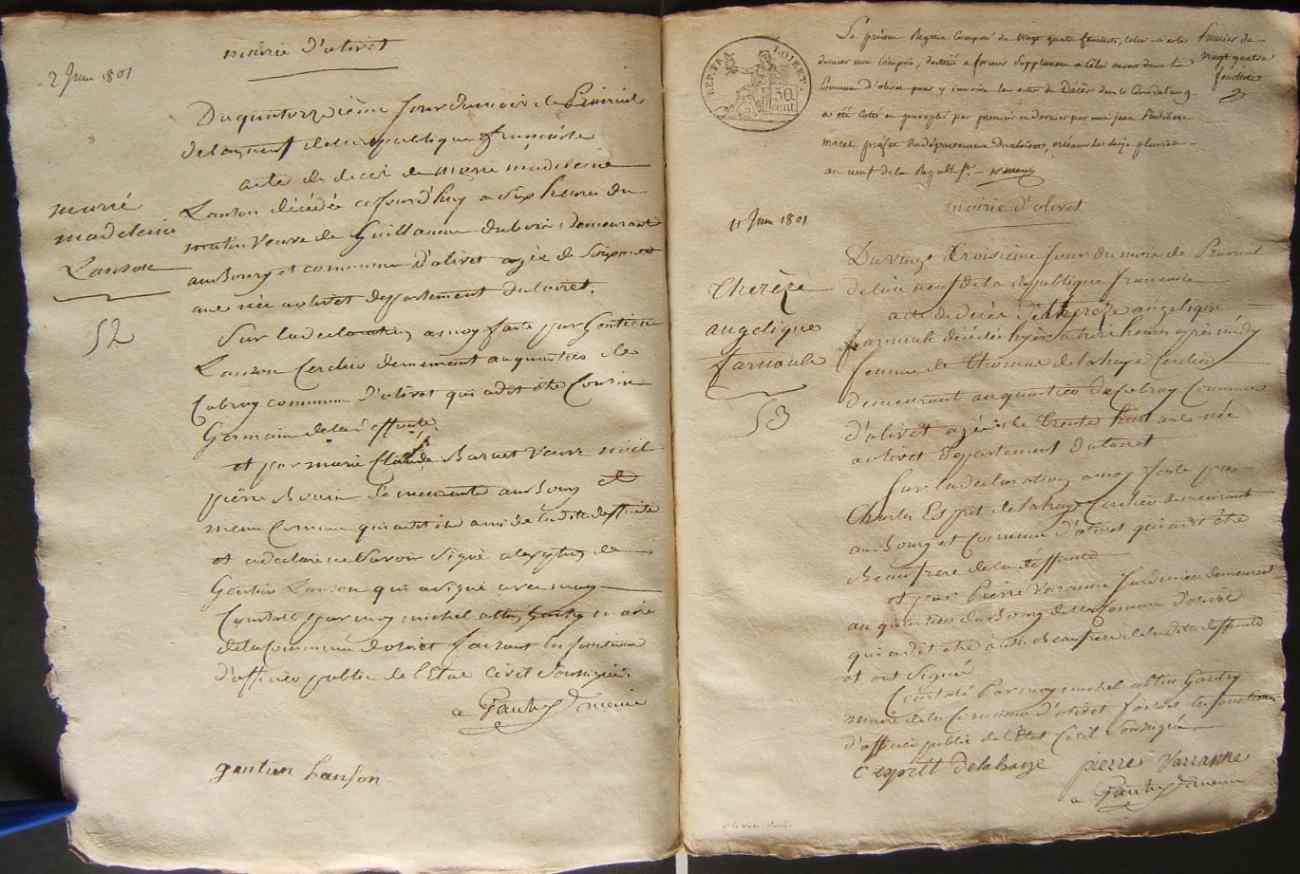 mairie d'olivet
2 Juin 1801
Du quatorzieme Jour du mois de Prairial
de lan neuf de la republique française
acte de decès de marie madeleine
Lanson décédée ce Jourd'huy a six heures du
matin veuve de Guillaume dubois demeurant
au Bourg et commune d'olivet agée de
ans née a olivet departement du loiret.
marié
madeleine
Lanson
52
Sur la declaration a moy faite par Gentien
Lanson Cerclier demeurant au quartier de
Cabray commune d'olivet qui a dit etre Cousin
Germain de la deffunte.
et par marie Claude Baruet veuve
pierre demeurante au Bourg et
meme Commune qui a dit etre amie de la dite deffunte
et a declaré ne Savoir Signé a lexception de
Gentien Lanson qui a signé avec moy
Constaté par moy michel Gaudry maire
de la commune d'olivet faisant les fonctions
d'officier public de l'Etat Civil Soussigné.
Gaudry maire
gentien Lanson
DEP. DU LOIRET
50 cent.
Le présent Registre Composé de Vingt quatre feuillets, celui-ci et le
dernier compris, destiné a
Commune d'olivet pour y inscrire les actes de Décès dans le Cours de l'an 9
a été cotté et paraphé par premier et dernier par moi jean
préfet du département du loiret, orleans le seize pluviose
an neuf de la Republ. fse.
Premier de
vingt quatre
feuillets
mairie d'olivet
11 Juin 1801
Therèze
angelique
farnault
53
Du vingt troisieme Jour du mois de Prairial
de lan neuf de la republique francaise
acte de décès de therèze angelique
farnault décédée hyer a trois heures après midy
femme de thomas delahaye Cerclier
demeurant au quartier de Cabray Commune
d'olivet agée de trente huit ans née
a olivet departement du loiret
Sur la declaration a moy faite par
Charles Esprit delahaye Cerclier demeurant
au Bourg et Commune d'olivet qui a dit etre
Beaufrere de la deffunte
et par Pierre Varanne Jardinier demeurant
au quartier du Bourg de la Commune d'olivet
qui a dit etre aussi Beaufrere de la dite deffunte
et ont Signé
Constaté Par moy michel Gaudry
maire de la Commune d'olivet faisant les fonctions
d'officier public de l'Etat Civil Soussigné
C esprit delahaye pierre Varanne
Gaudry maire